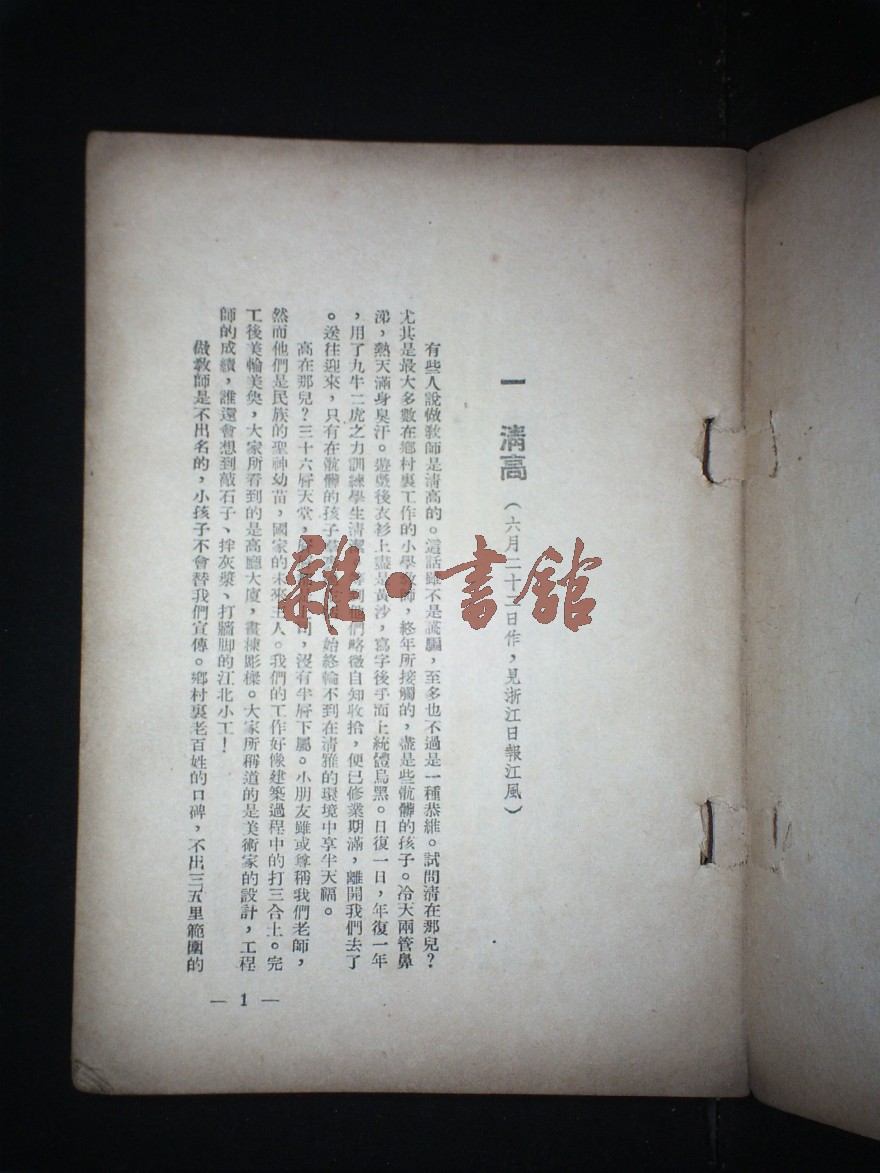 一 清高 (六月二十二日作,見浙江日報江風)
有些人說做敎師是清高的。這話雖不是謊騙,至多也不過是一種恭維。試問清在那兒?
尤其是最大多數在鄉村裏工作的小學敎師,終年所接觸的,盡是些骯髒的孩子。冷天兩管鼻
涕,熱天滿身臭汗。遊戲後衣衫上盡是黃沙,寫字後手面上統體烏黑。日復一日,年復一年
,用了九牛二虎之力訓練學生清潔,他們略微自知收拾,便已修業期滿,離開我們去了
。送往迎來,只有在骯髒的孩子始終輪不到在清雅的環境中享半天福。
高在那兒?三十六層天堂,司,沒有半層下屬。小朋友雖或尊稱我們老師,
然而他們是民族的聖神幼苗,國家的未來主人。我們的工作好像建築過程中的打三合土。完
工後美輪美奐,大家所看到的是高廳大廈,畫棟彫樑。大家所稱道的是美術家的設計,工程
師的成績,誰還會想到敲石子、拌灰漿、打牆脚的江北小工!
做敎師是不出名的,小孩子不會替我們宣傳。鄉村裏老百姓的口碑,不出三五里範圍的
— 1 —
雜·書館